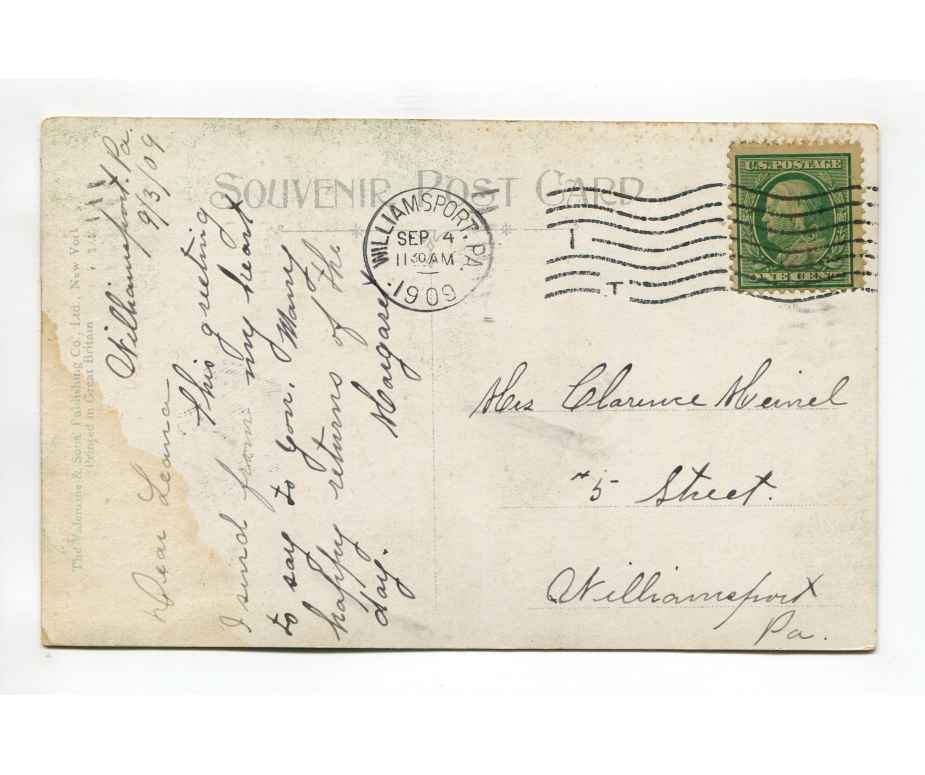 SOUVENIR POST CARD
WILLIAMSPORT, PA.
SEP 4
11 30 AM
1909
U.S. POSTAGE
ONE CENT
The Valentine & Sons' Publishing Co., Ltd., New York
Printed in Great Britain
Williamsport. Pa.
9/3/09
Dear
This greeting
I send from my heart
to say to you. Many
happy returns of the
day. Margaret
Mrs Clarence Meinel
5 Street.
Williamsport
Pa.